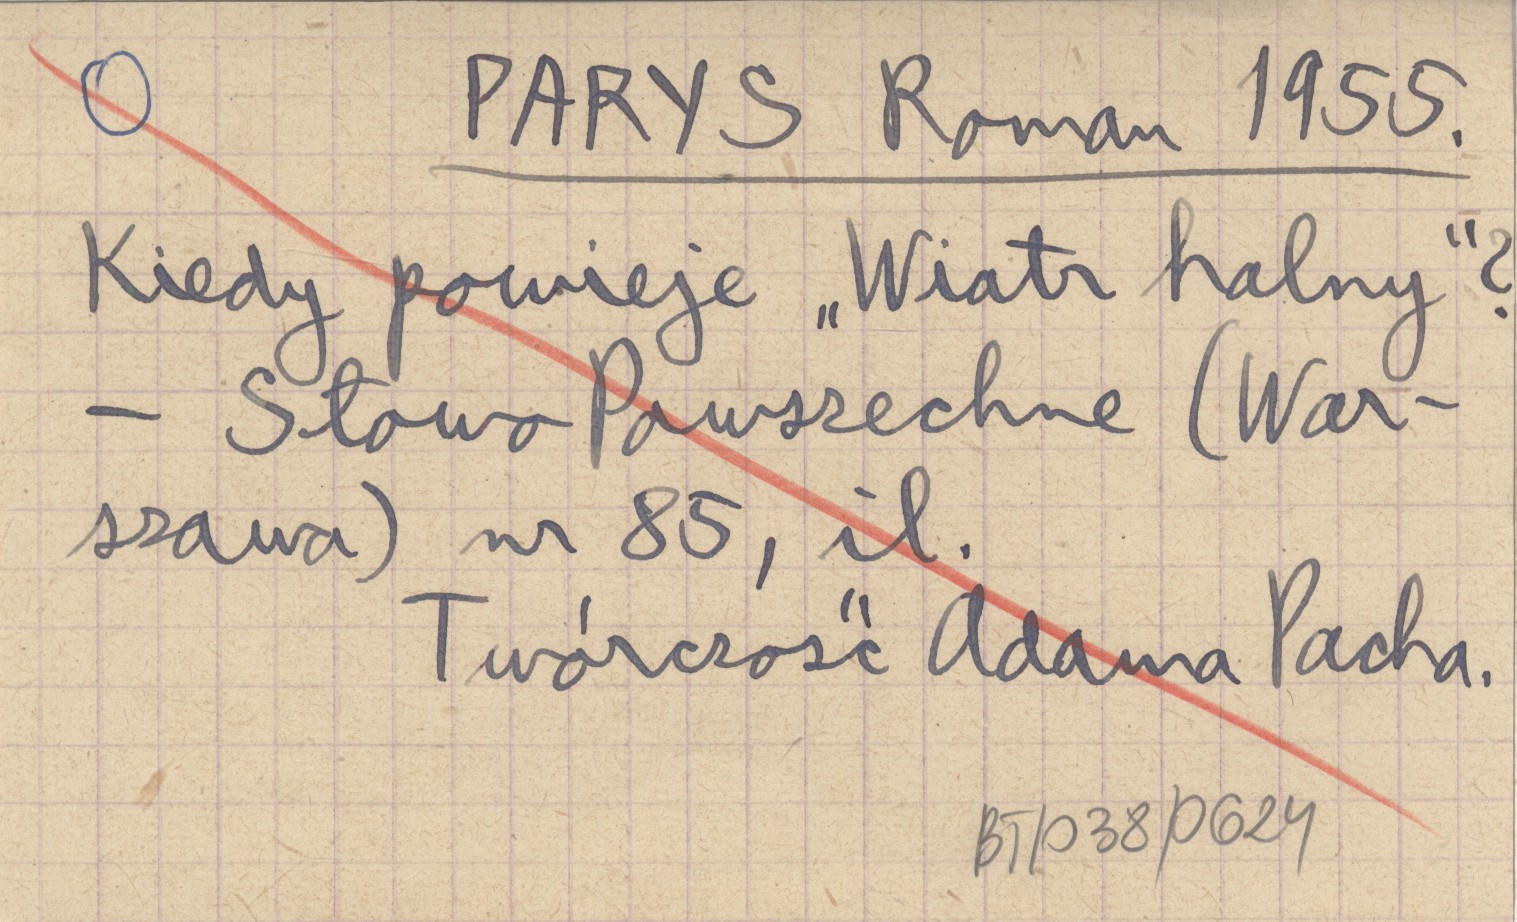 O PARYS Roman 1955.
Kiedy powieje „Wiatr halny"?
– Słowo Powszechne (War-
szawa) nr 85, il.
Twórczość Adama Pacha.
BT/038/0624